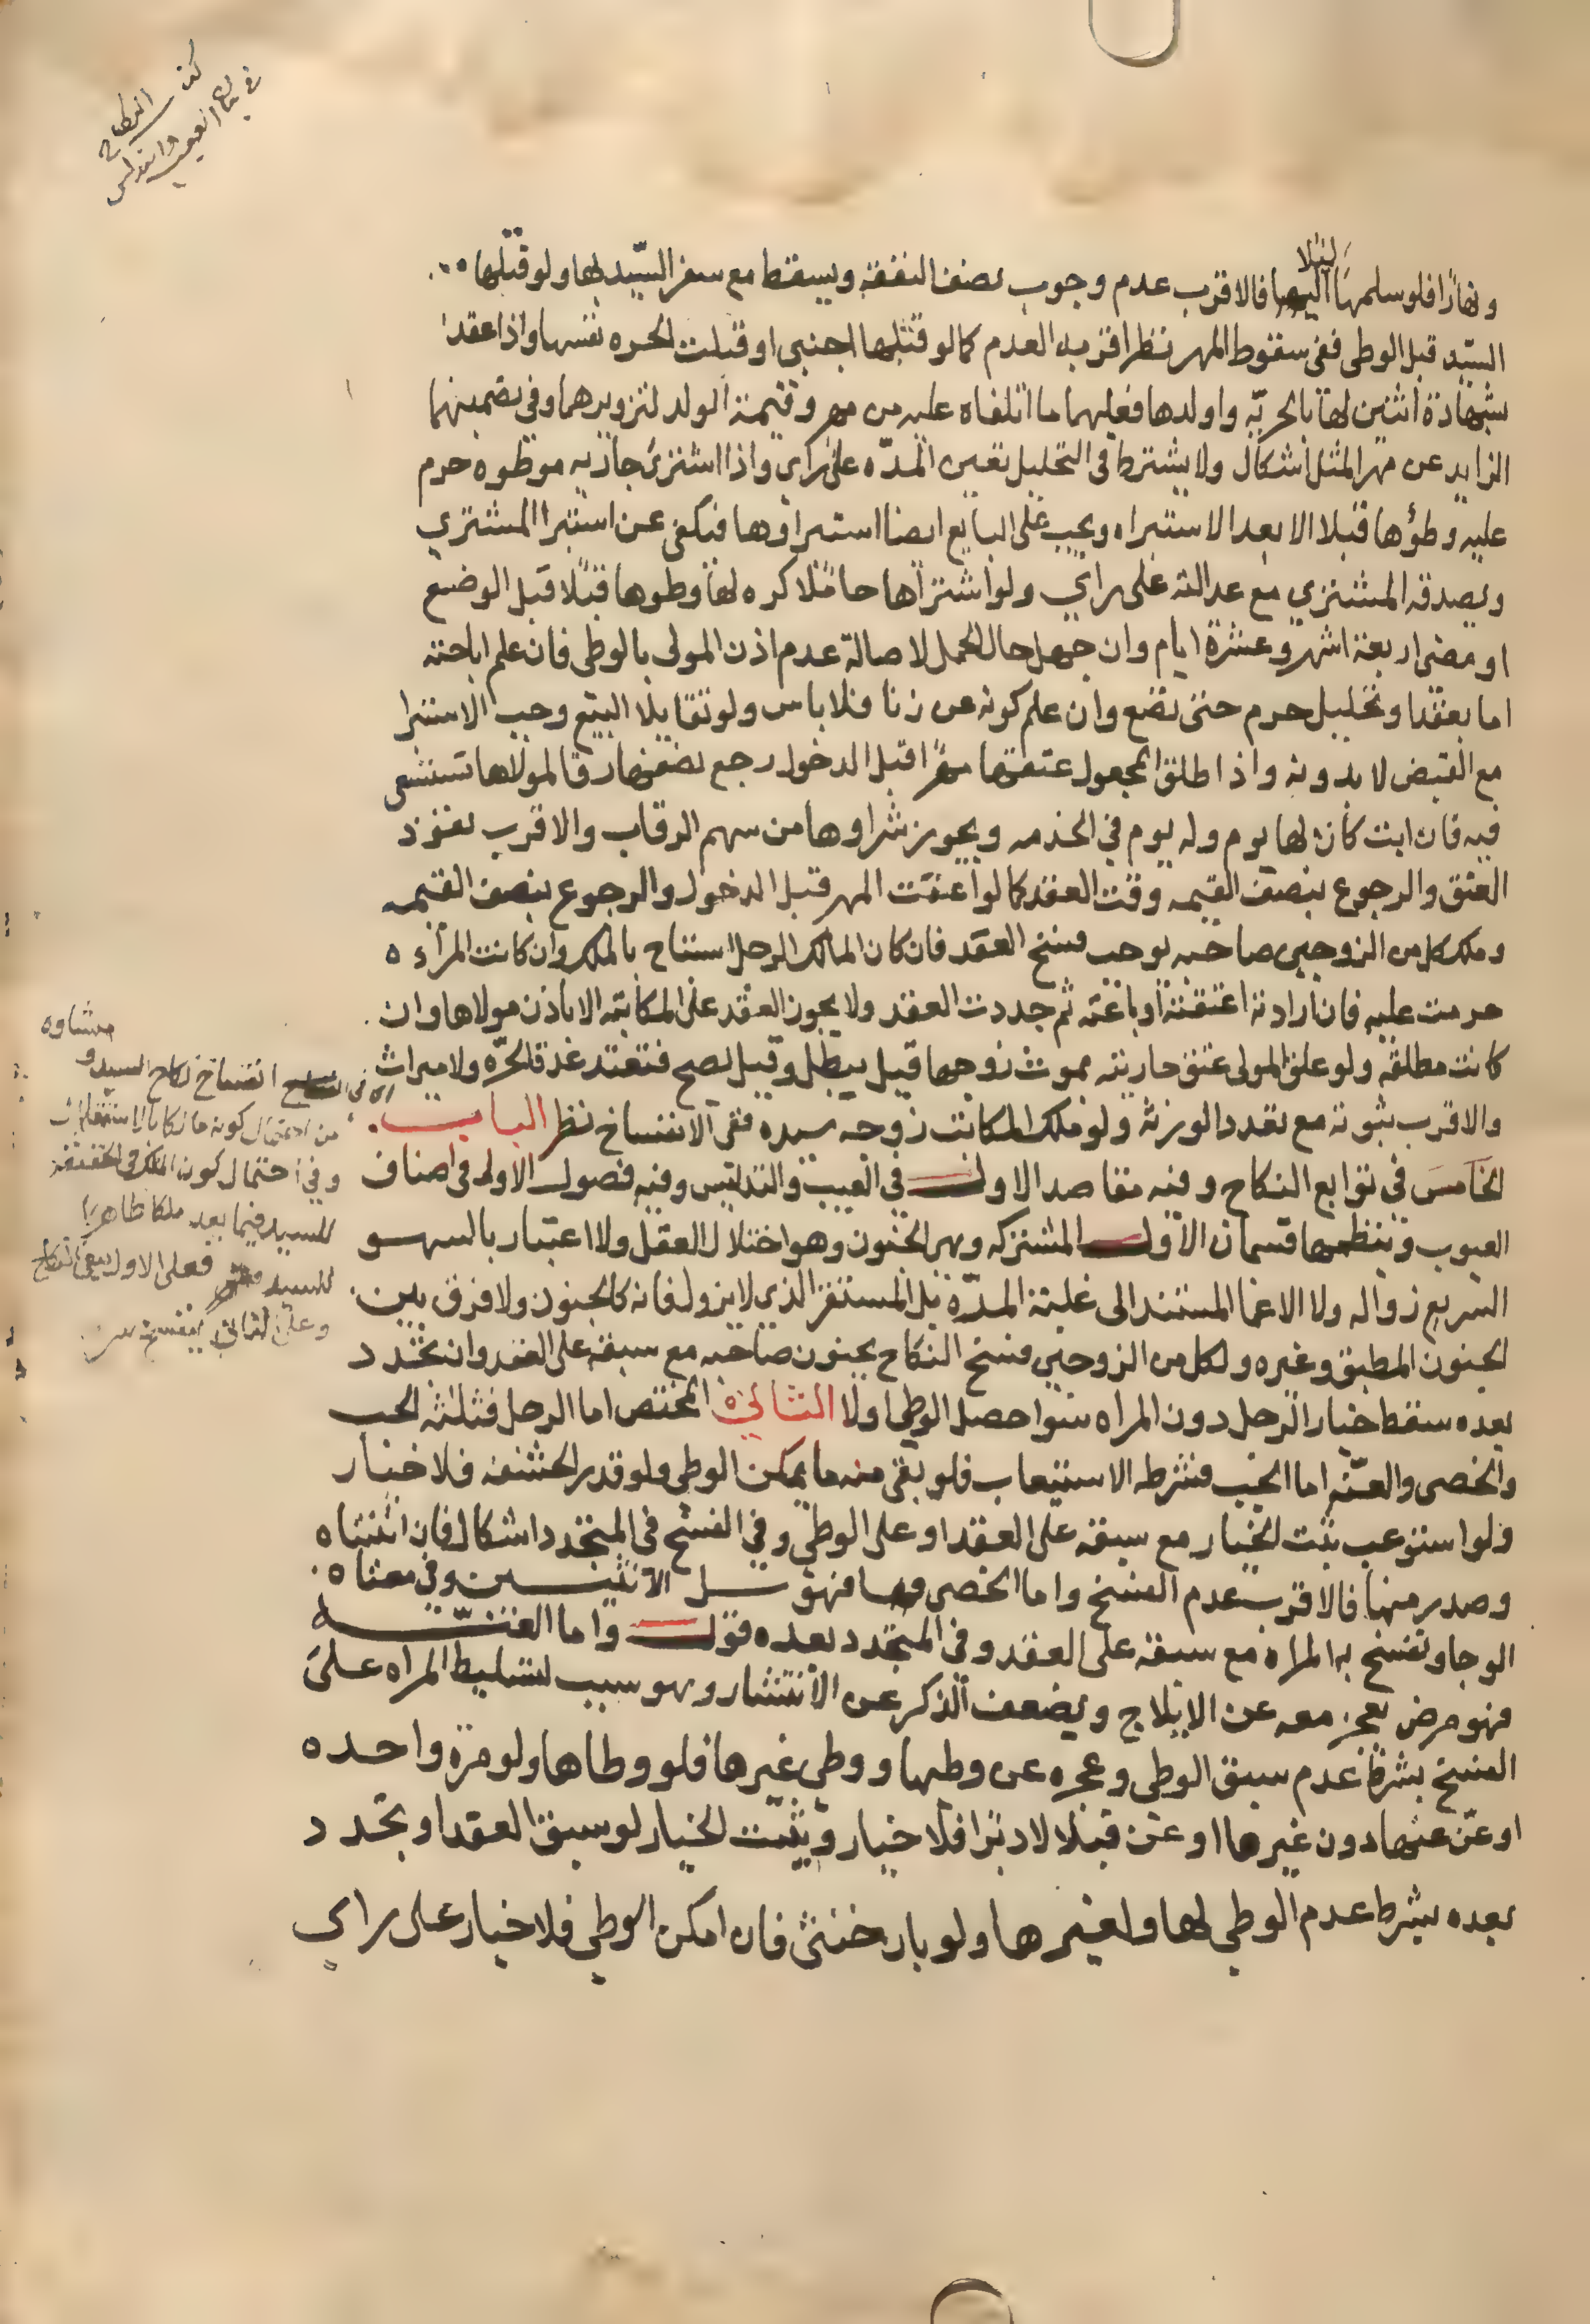 كتاب النكاح
في العيب والتدليس
ليلا
ونهارا فلو سلمها اليها فالاقرب عدم وجوب نصف النفقة ويسقط مع سفر السيد بها ولو قتلها
السيد قبل الوطى ففي سقوط المهر نظر اقربه العدم كما لو قتلها اجنبى او قتلت الحره نفسها واذا عقد
بشهادة اثنين لها بالحريه واولدها فعليهما ما اتلفاه عليه من مهر وقيمة الولد لتزويرهما وفى تضمينهما
الزايد عن مهر المثل اشكال ولا يشترط فى التحليل تعيين المده على راي واذا اشترى جاريه موطوه حرم
عليه وطؤها قبلا الا بعد الاستبراء ويجب على البايع ايضا استبراوها فيكفى عن استبرا المشتري
ويصدقه المشتري مع عدالته على راي ولو اشتراها حاملا كره له وطوها قبلا قبل الوضع
او مضى اربعة اشهر وعشرة ايام وان جهل حال الحمل لاصالة عدم اذن المولى بالوطى فان علم اباحته
اما بعقد او تحليل حرم حتى تضع وان علم كونه عن زنا فلا باس ولو تقايلا البيع وجب الاستبرا
مع القبض لا بدونه واذا طلق المجعول عتقها مهرا قبل الدخول رجع نصفها رقا لمولاها تستسعى
فيه فان ابت كان لها يوم وله يوم في الخدمه ويجوز شراوها من سهم الرقاب والاقرب نفوذ
العتق والرجوع بنصف القيمه وقت العقد كما لو اعتقت المهر قبل الدخول والرجوع بنصف القيمه
وملك كل من الزوجين صاحبه يوجب فسخ العقد فان كان المالك الرجل استباح بالملك وان كانت المراءه
حرمت عليه فان ارادته اعتقته او باعته ثم جددت العقد ولا يجوز العقد على المكاتبه الا باذن مولاها وان
كانت مطلقه ولو علق المولى عتق جاريته بموت زوجها قيل يبطل وقيل يصح فتعتد عدة الحره ولا ميراث
والاقرب ثبوته مع تعدد الورثة ولو ملك المكاتب زوجه سيده ففى الانفساخ نظر الباب
الخامس في توابع النكاح وفيه مقاصد الاول في العيب والتدليس وفيه فصول الاول فى اصناف
العيوب وينظمها قسمان الاول المشتركه وهر الجنون وهو اختلال العقل ولا اعتبار بالسهو
السريع زواله ولا الاغما المستند الى غلبة المرّه بل المستقر الذي لا يزول فانه كالجنون ولا فرق بين
الجنون المطبق وغيره ولكل من الزوجين فسخ النكاح بجنون صاحبه مع سبقه على العقد وان تجدد
بعده سقط خيار الرجل دون المراه سوا حصل الوطى او لا الثاني المختص اما الرجل فثلثه الجب
والخصى والعنّه اما الجب فشرطه الاستيعاب فلو بقى منه ما يمكن الوطى ولو قدر الحشفه فلا خيار
ولو استوعب ثبت الخيار مع سبقه على العقد او على الوطى وفي الفسخ فى المتجدد اشكال فان اثبتناه
وصدر منها فالاقرب عدم الفسخ واما الخصى فهو سل الانثيين وفي معناه
الوجا وتفسخ به المراه مع سبقه على العقد وفى المتجدد بعده قول واما العنّه
فهو مرض يعجز معه عن الايلاج ويضعف الذكر عن الانتشار وهو سبب لتسليط المراه على
الفسخ بشرط عدم سبق الوطى وعجزه عن وطيها ووطى غيرها فلو وطاها ولو مرة واحده
او عنّ عنها دون غيرها او عنّ قبلا لا دبرا فلا خيار ويثبت الخيار لو سبق العقد او تجدد
بعده بشرط عدم الوطى لها ولغيرها ولو بان خنثى فان امكن الوطى فلا خيار على راي
انفساخ نكاح السيد و
من احتمال كونه مالكا بالاستقلال
وفي احتمال كون الملك في الحقيقه
للسيد فيما بعد ملكا ظاهريا
للسيد فعلى الاول يبقى نكاح
وعلى الثانى ينفسخ